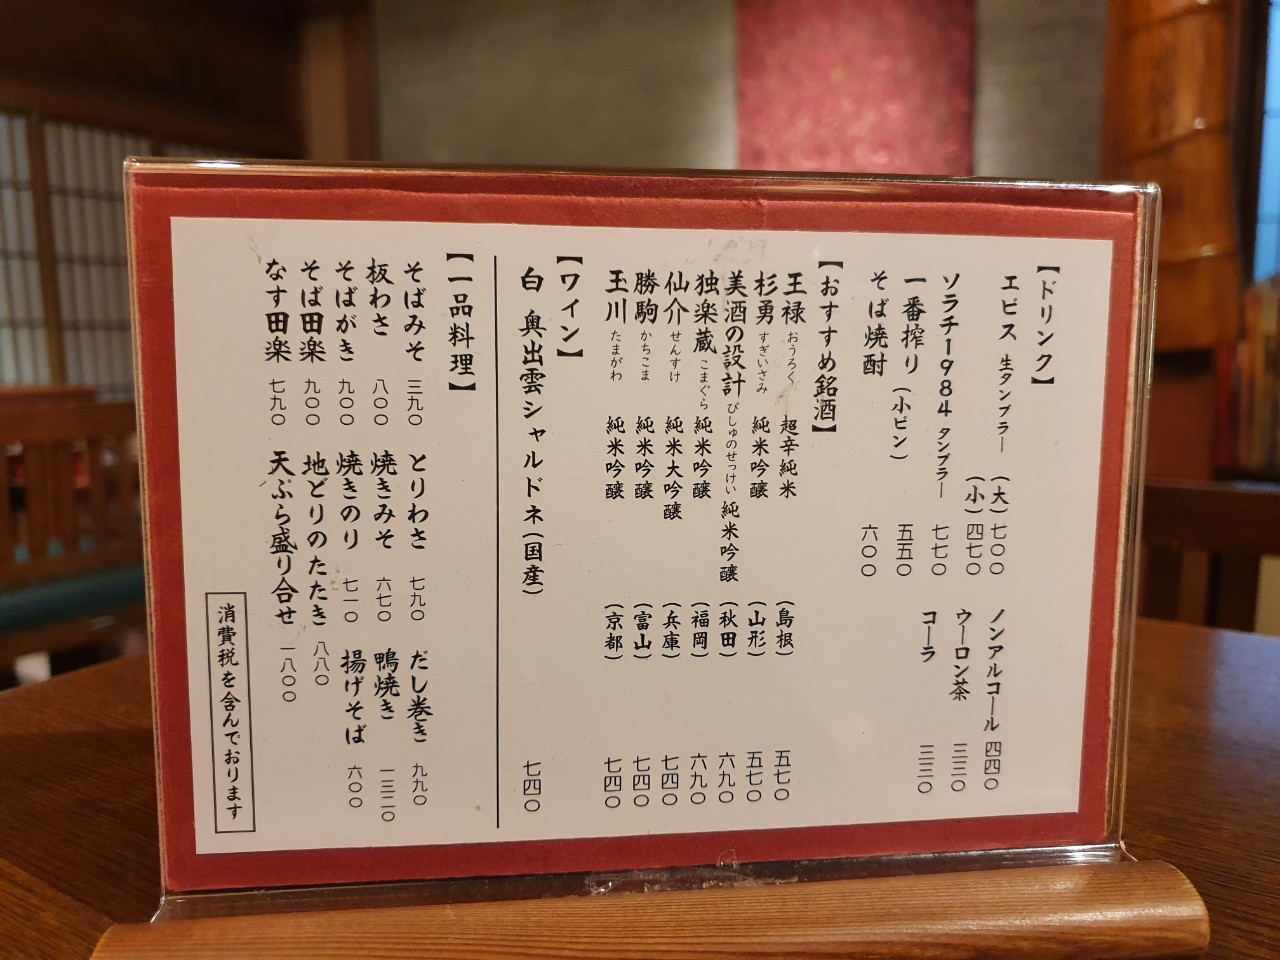 【ドリンク】
エビス 生タンブラー (大) 七〇〇
(小) 四七〇
ソラチ1984 タンブラー 七七〇
一番搾り (小ビン) 五五〇
そば焼酎 六〇〇
ノンアルコール 四四〇
ウーロン茶 三三〇
コーラ 三三〇
【おすすめ銘酒】
王禄 おうろく 超辛純米 (島根) 五七〇
杉勇 すぎいさみ 純米吟醸 (山形) 五七〇
美酒の設計 びしゅのせっけい 純米吟醸 (秋田) 六九〇
独楽蔵 こまぐら 純米吟醸 (福岡) 六九〇
仙介 せんすけ 純米大吟醸 (兵庫) 七四〇
勝駒 かちこま 純米吟醸 (富山) 七四〇
玉川 たまがわ 純米吟醸 (京都) 七四〇
【ワイン】
白 奥出雲シャルドネ(国産) 七四〇
【一品料理】
そばみそ 三九〇 とりわさ 七九〇 だし巻き 九九〇
板わさ 八〇〇 焼きみそ 六七〇 鴨焼き 一三二〇
そばがき 九〇〇 焼きのり 七一〇 揚げそば 六〇〇
そば田楽 九〇〇 地どりのたたき 八八〇
なす田楽 七九〇 天ぷら盛り合せ 一八〇〇
消費税を含んでおります